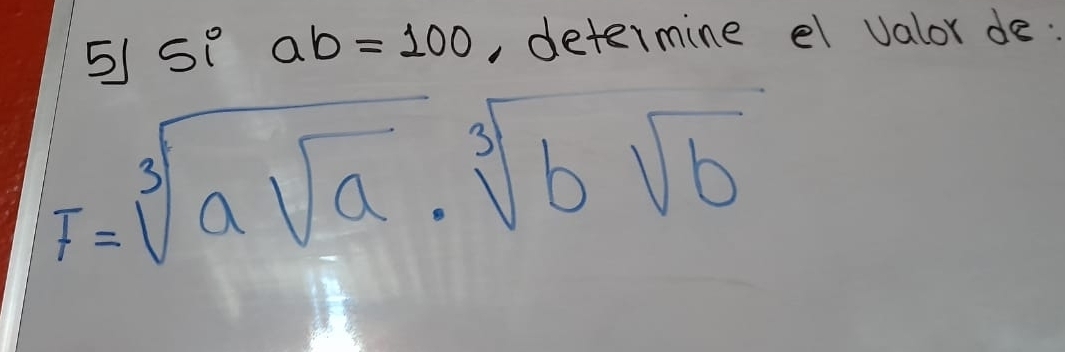 5) Si ab = 100, determine el valor de:
F = ∛(a√a) . ∛(b√b)